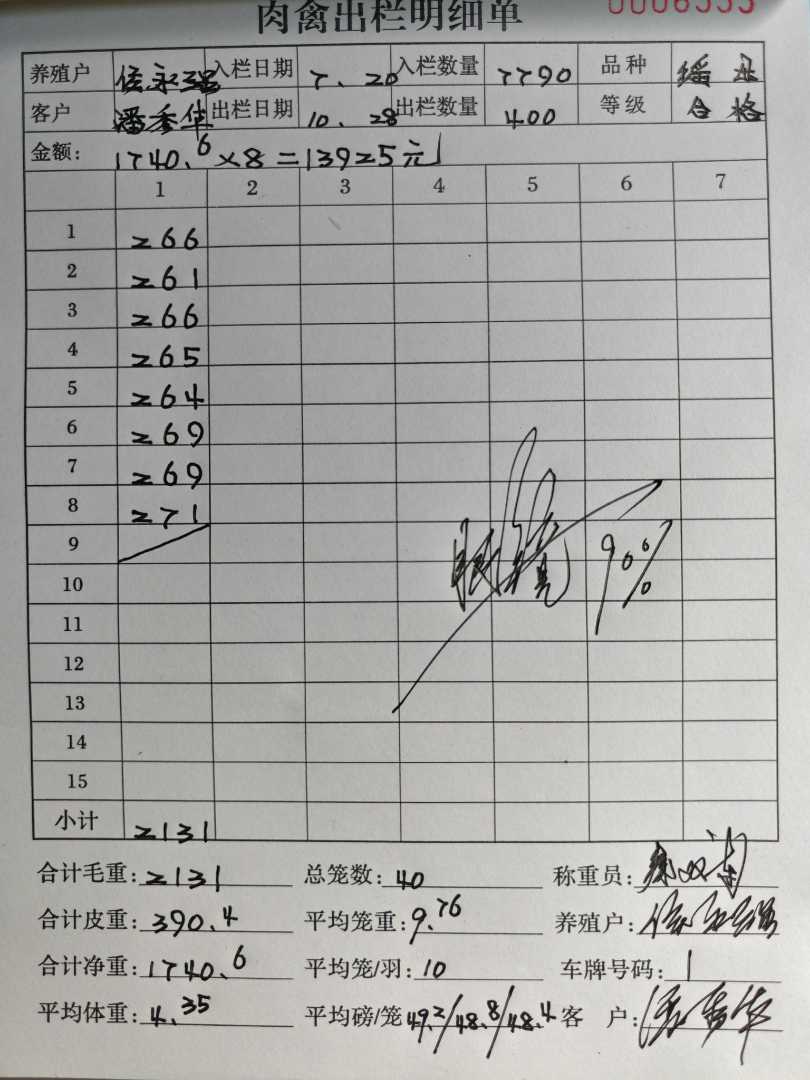 肉禽出栏明细单
养殖户 侯永强 入栏日期 7.20 入栏数量 7790 品种 瑶丑
客户 潘秀华 出栏日期 10.28 出栏数量 400 等级 合格
金额: 1740.6×8=13925元
1 2 3 4 5 6 7
1 266
2 261
3 266
4 265
5 264
6 269
7 269
8 271
9
10
11
12
13
14
15
90%
小计 2131
合计毛重: 2131 总笼数: 40 称重员:
合计皮重: 390.4 平均笼重: 9.76 养殖户: 侯永强
合计净重: 1740.6 平均笼/羽: 10 车牌号码: 1
平均体重: 4.35 平均磅/笼 49.2/48.8/48.4 客 户: 潘秀华